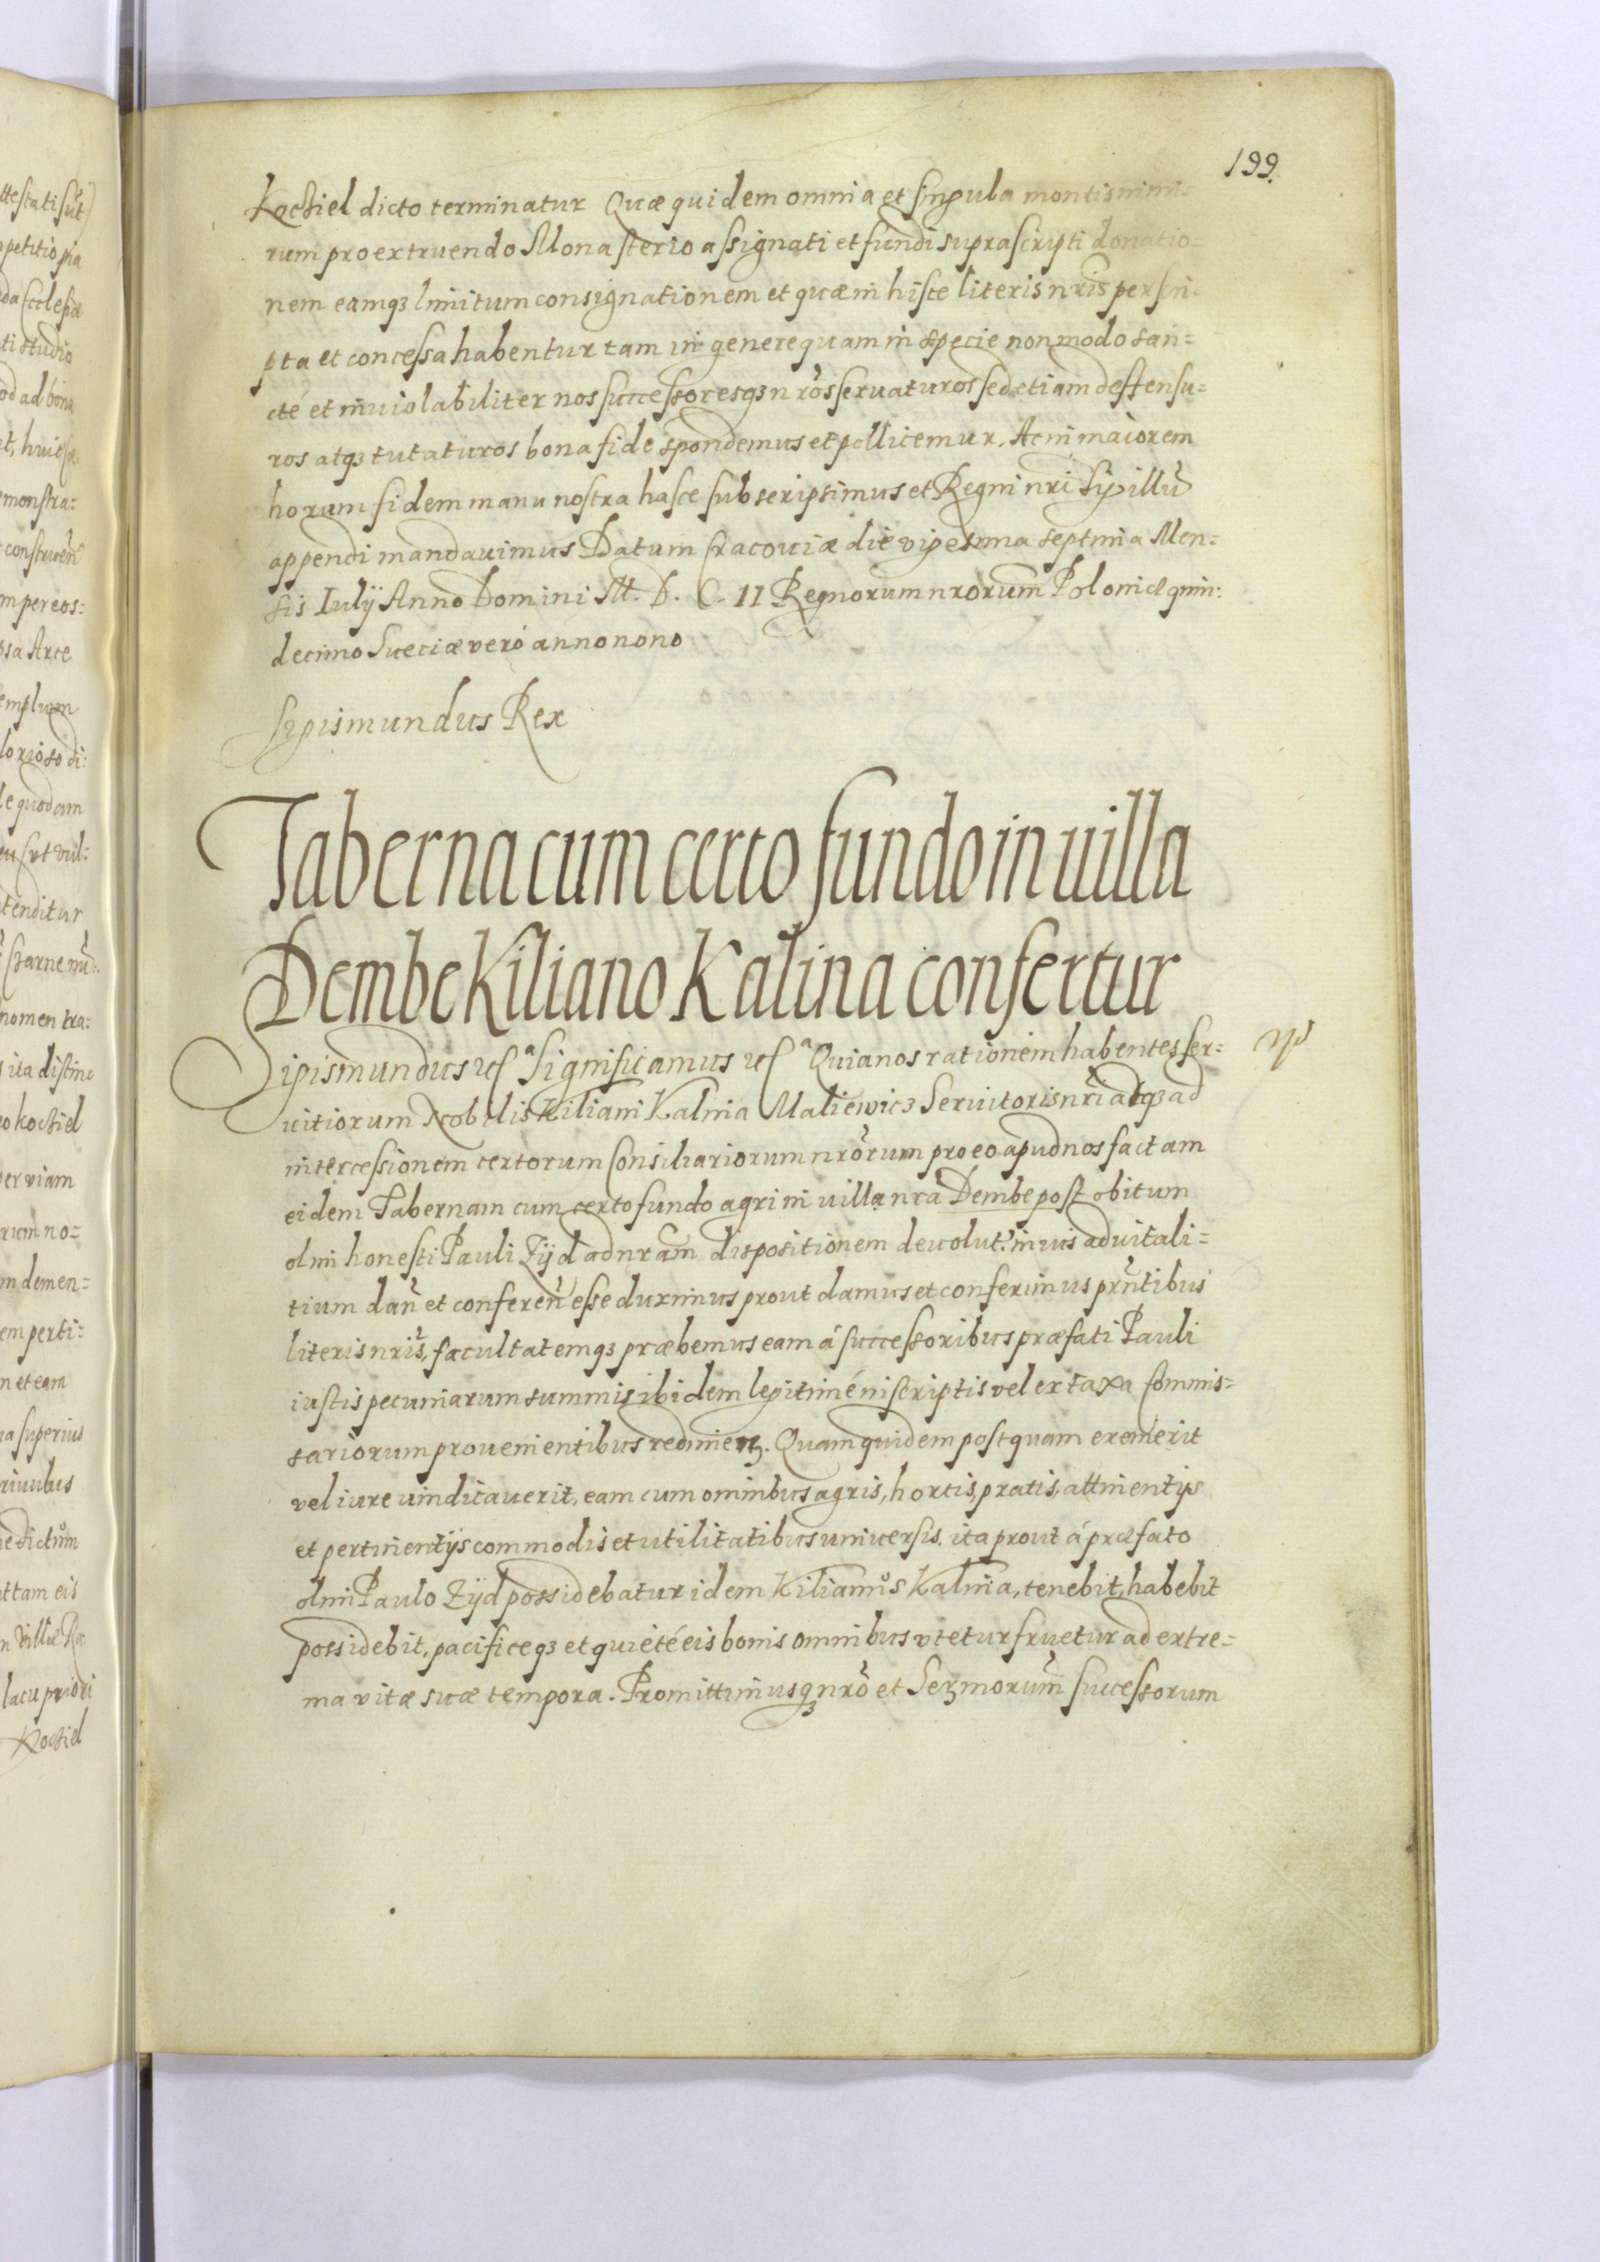 199.
Kochiel dicto terminatur Quæ quidem omnia et singula montis nimi-
rum pro extruendo Monasterio assignati et fundi suprascripti donatio-
nem eamqȝ limitum consignationem et quæ in hisce literis nr̃is perscri-
pta et concessa habentur tam in genere quam in specie non modo san=
cté et inuiolabiliter nos successoresqȝ nr̃os seruaturos sed etiam deffensu=
ros atqȝ tutaturos bona fide spondemus et pollicemur. Ac in maiorem
horum fidem manu nostra hasce subscripsimus et Regni nr̃i Sigillũ
appendi mandauimus Datum Cracouiæ die vigesima septima Men=
sis Iulÿ Anno Domini M. D. C. II Regnorum nr̃orum Poloniæ quin:
decimo Sueciæ veró anno nono
Sigismundus Rex
Taberna cum certo fundo in uilla
Dembe Kiliano Kalina confertur
Sigismundus etc.ª Significamus etc.ª Quia nos rationem habentes ser=
uitiorum Nobilis Kiliani Kalina Maliewicz Seruitoris nr̃i atqȝ ad
intercessionem certorum Consiliariorum nr̃orum pro eo apud nos factam
eidem Tabernam cum certo fundo agri in uilla nr̃a Dembe post obitum
olim honesti Pauli Zÿd ad nr̃am dispositionem deuolut: in uis aduitali=
tium dañ et confereñ esse duximus prout damus et conferimus pr̃ntibus
literis nr̃is, facultatemqȝ præbemus eam á successoribus præfati Pauli
iustis pecuniarum summis ibidem legitimé inscriptis vel ex taxa Commis=
sariorum prouenientibus redimen. Quam quidem postquam exemerit
vel iure uindicauerit, eam cum omnibus agris, hortis, pratis, attinentijs
et pertinentÿs commodis et utilitatibus uniuersis. ita prout á præfato
olim Paulo Zÿd possidebatur idem Kilianus Kalina, tenebit, habebit
possidebit, pacificeqȝ et quieté eis bonis omnibus vtetur fruetur ad extre=
ma vitæ suæ tempora. Promittimusqȝ nr̃o et Serȝmorum successorum